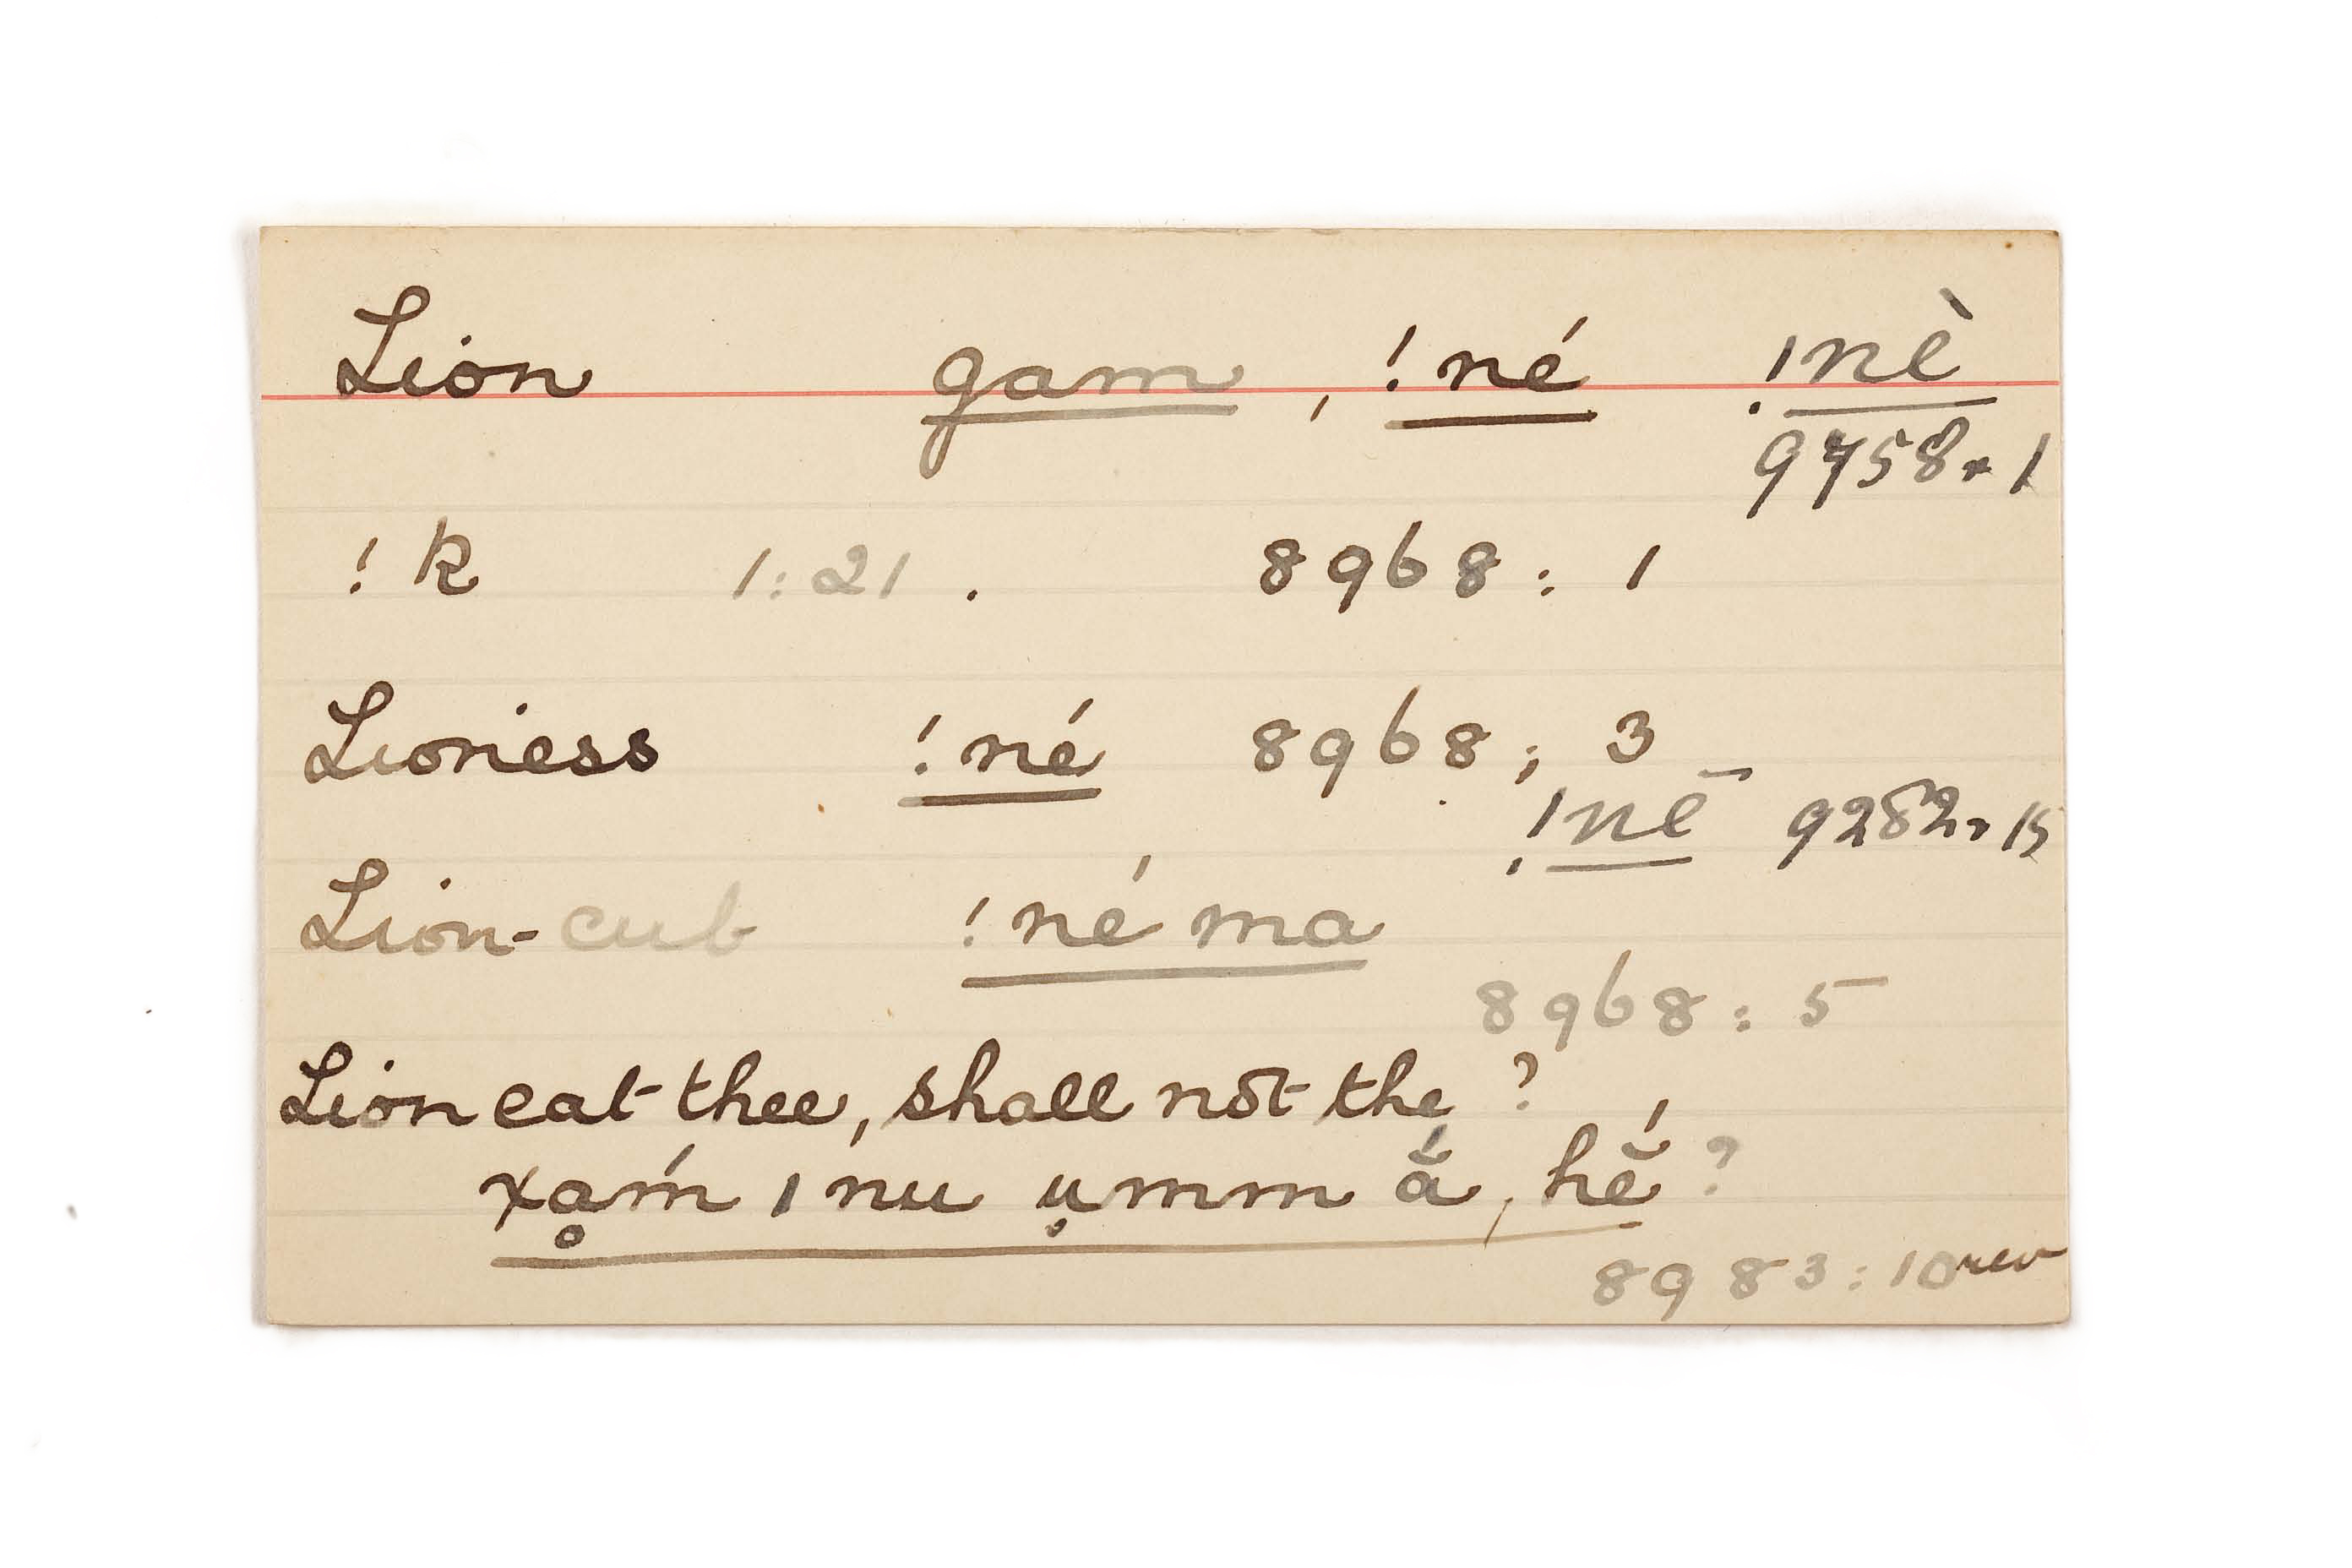 Lion gam, !né !nè
9758. 1
!k 1:21. 8968: 1
Lioness !né 8968; 3
!nē 9282. 15
Lion-cub !né ma
8968: 5
Lion eat thee, shall not the?
χḁḿ ı nu ụmm ắ, hḗ̆?
8983: 10 rev